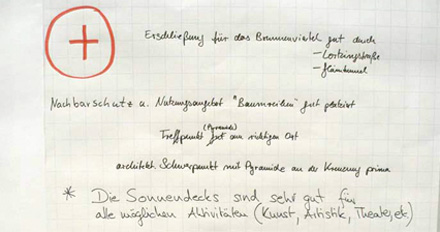 +
Erschließung für das Brunnenviertel gut durch
– Lortzingstraße
–
Nachbarschutz u. Nutzungsangebot "Baumreihen" gut platziert
(Pyramide)
Treffpunkt gut am richtigen Ort
architekt. Schwerpunkt mit Pyramide an der Kreuzung prima
* Die Sonnendecks sind sehr gut für
alle möglichen Aktivitäten (Kunst, Artistik, Theater, etc.)